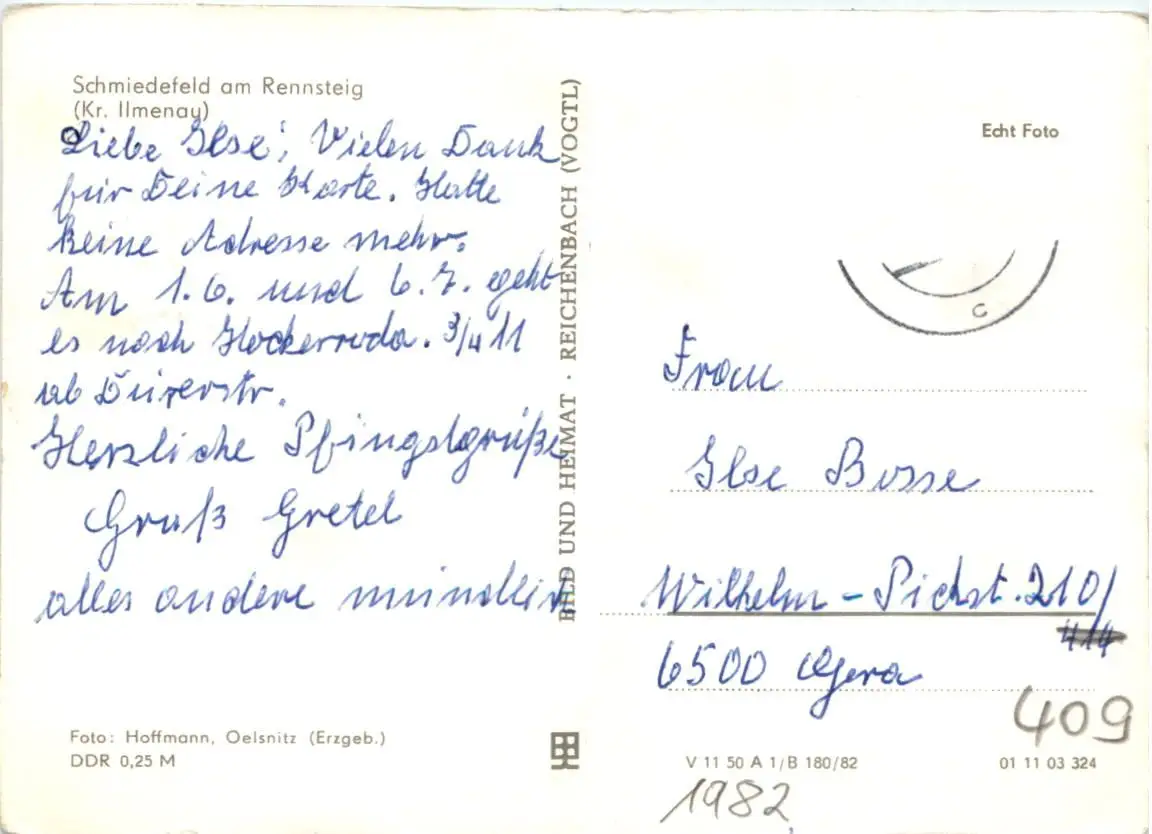 Schmiedefeld am Rennsteig
(Kr. Ilmenau)
Liebe Ilse, Vielen Dank
für Deine Karte. Hatte
keine Adresse mehr.
Am 1.6. und 6.7. geht
es nach Hockerroda. 3/4 11
ab Dürerstr.
Herzliche Pfingstgrüße
Gruß Gretel
alles andere mündlich
Foto: Hoffmann, Oelsnitz (Erzgeb.)
DDR 0,25 M
BILD UND HEIMAT · REICHENBACH (VOGTL)
Echt Foto
C
Frau
Ilse Bosse
Wilhelm-Pieckst. 210/
6500 Gera
409
V 11 50 A 1/B 180/82
01 11 03 324
1982